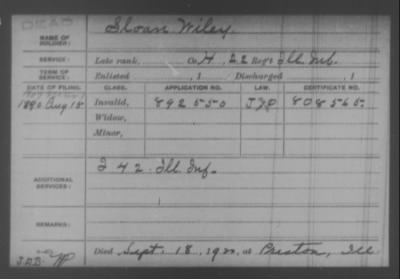 DEAD
NAME OF SOLDIER: Sloan Wiley.
SERVICE: Late rank, Co. H, 22 Reg't Ill. Inf.
TERM OF SERVICE: Enlisted , 1 Discharged , 1
DATE OF FILING. CLASS. APPLICATION NO. LAW. CERTIFICATE NO.
1890 Aug 18 Invalid, 892550 808565
Widow,
Minor,
ADDITIONAL SERVICES: I 42 Ill. Inf.
REMARKS:
Died Sept. 18, 19 at , Ill